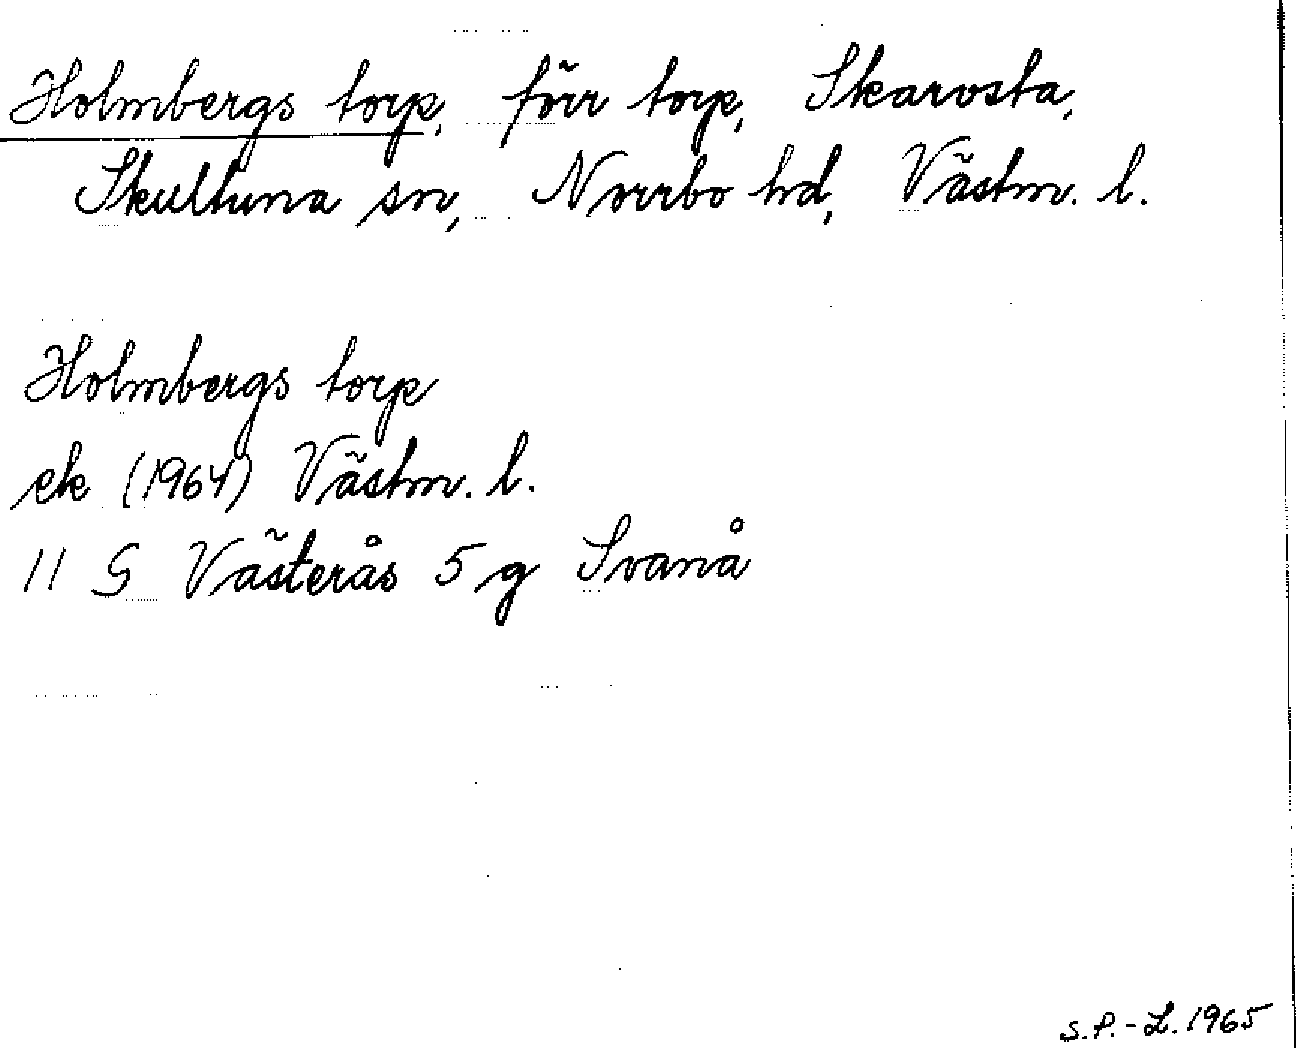 Holmbergs torp, förr torp, Skarvsta,
Skultuna sn, Norrbo hd, Västm. l.
Holmbergs torp
ek (1964) Västm. l.
11 G Västerås 5 g Svanå
S.P.-L. 1965